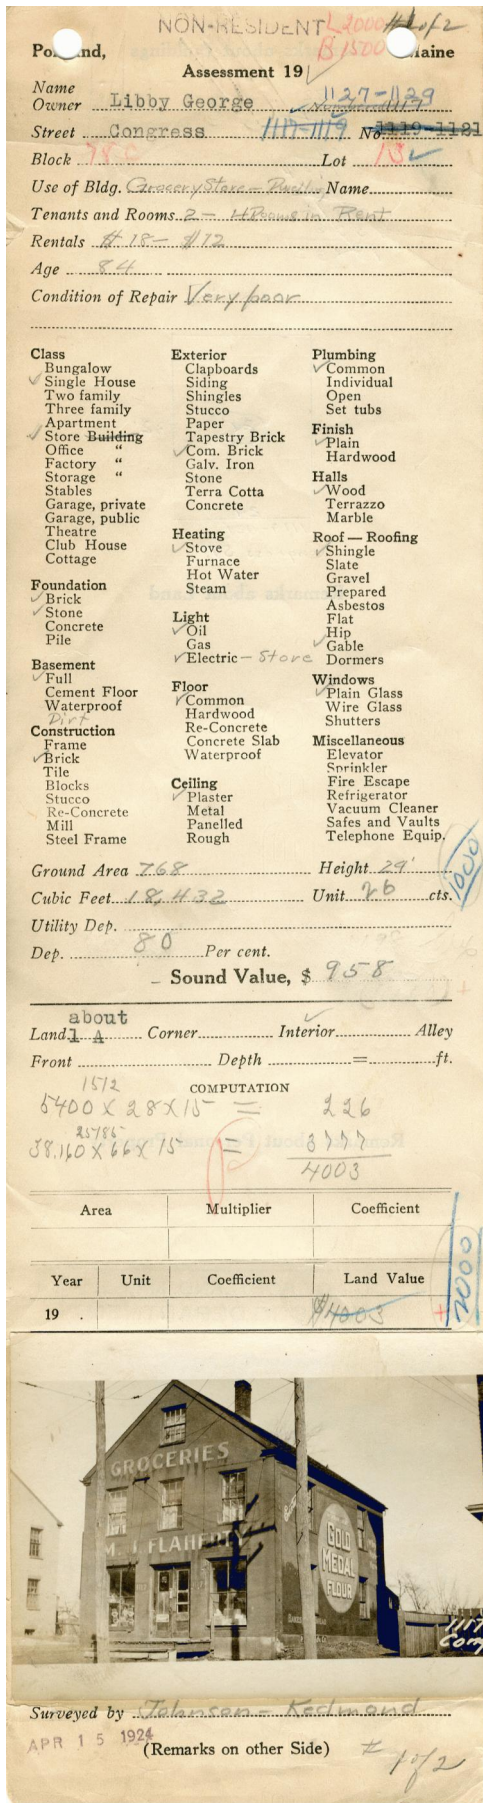 NON-RESIDENT L 2000 #1 of 2
B 1500
Portland, Maine
Assessment 19
Name
Owner Libby George 1127-1129
Street Congress 1117-1119 No 1119-1121
Block 78 Lot 13
Use of Bldg. Grocery Store - Dwelling Name
Tenants and Rooms 2 - 4 Rooms in Rent
Rentals # 18 - $12
Age 84
Condition of Repair Very poor
Class
Bungalow
Single House
Two family
Three family
Apartment
Store Building
Office "
Factory "
Storage "
Stables
Garage, private
Garage, public
Theatre
Club House
Cottage
Foundation
Brick
Stone
Concrete
Pile
Basement
Full
Cement Floor
Waterproof
Dirt
Construction
Frame
Brick
Tile
Blocks
Stucco
Re-Concrete
Mill
Steel Frame
Exterior
Clapboards
Siding
Shingles
Stucco
Paper
Tapestry Brick
Com. Brick
Galv. Iron
Stone
Terra Cotta
Concrete
Heating
Stove
Furnace
Hot Water
Steam
Light
Oil
Gas
Electric - Store
Floor
Common
Hardwood
Re-Concrete
Concrete Slab
Waterproof
Ceiling
Plaster
Metal
Panelled
Rough
Plumbing
Common
Individual
Open
Set tubs
Finish
Plain
Hardwood
Halls
Wood
Terrazzo
Marble
Roof — Roofing
Shingle
Slate
Gravel
Prepared
Asbestos
Flat
Hip
Gable
Dormers
Windows
Plain Glass
Wire Glass
Shutters
Miscellaneous
Elevator
Sprinkler
Fire Escape
Refrigerator
Vacuum Cleaner
Safes and Vaults
Telephone Equip.
Ground Area 768 Height 29'
Cubic Feet 18,432 Unit 26 cts.
1000
Utility Dep.
Dep. 80 Per cent.
Sound Value, $ 958
about
Land 1 A Corner Interior Alley
Front Depth = ft.
COMPUTATION
1512
5400 X 28 X 15 = 226
25185
38.160 X 66 X 15 = 3777
4003
Area Multiplier Coefficient
Year Unit Coefficient Land Value
19 $4003
2000
GROCERIES
M. J. FLAHERTY
GOLD
MEDAL
FLOUR
1117
Con
Surveyed by Johnson - Redmond
APR 15 1924
(Remarks on other Side)
# 1 of 2